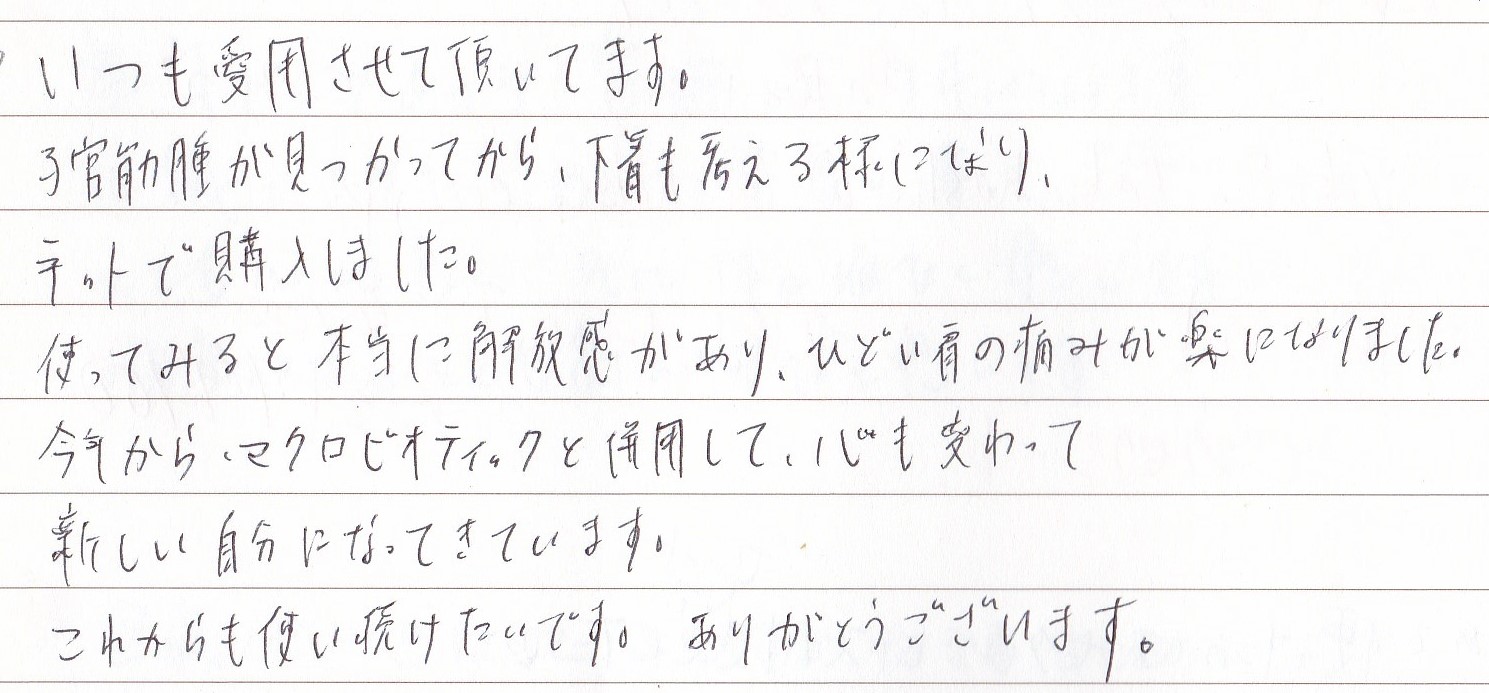 いつも愛用させて頂いてます。
子宮筋腫が見つかってから、下着も考える様になり、
ネットで購入しました。
使ってみると本当に解放感があり、ひどい肩の痛みが楽になりました。
今年から、マクロビオティックと併用して、心も変わって
新しい自分になってきています。
これからも使い続けたいです。ありがとうございます。